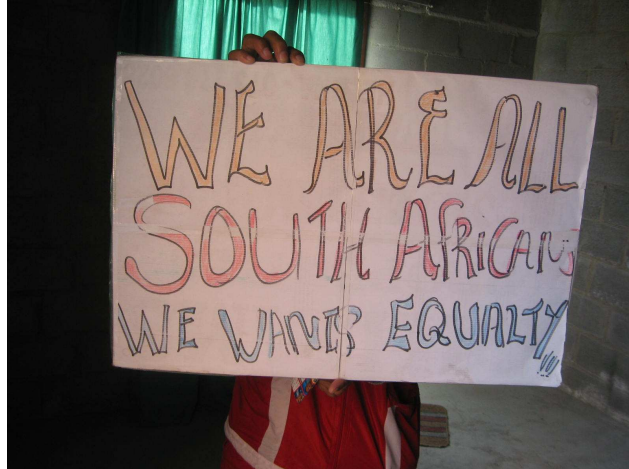 WE ARE ALL
SOUTH AFRICANS
WE WANTS EQUALTY!!!